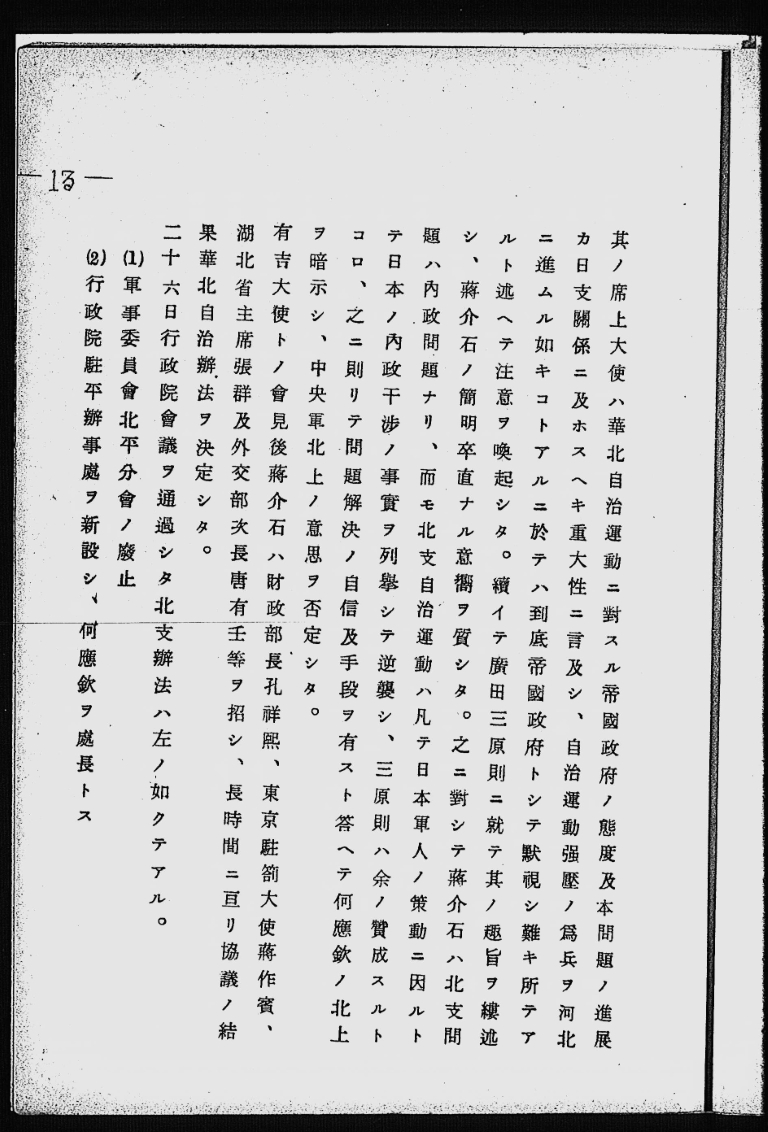 其ノ席上大使ハ華北自治運動ニ對スル帝國政府ノ態度及本問題ノ進展
カ日支關係ニ及ホスヘキ重大性ニ言及シ、自治運動强壓ノ爲兵ヲ河北
ニ進ムル如キコトアルニ於テハ到底帝國政府トシテ默視シ難キ所テア
ルト述ヘテ注意ヲ喚起シタ。續イテ廣田三原則ニ就テ其ノ趣旨ヲ縷述
シ、蔣介石ノ簡明卒直ナル意嚮ヲ質シタ。之ニ對シテ蔣介石ハ北支問
題ハ內政問題ナリ、而モ北支自治運動ハ凡テ日本軍人ノ策動ニ因ルト
テ日本ノ內政干涉ノ事實ヲ列擧シテ逆襲シ、三原則ハ余ノ贊成スルト
コロ、之ニ則リテ問題解決ノ自信及手段ヲ有スト答ヘテ何應欽ノ北上
ヲ暗示シ、中央軍北上ノ意思ヲ否定シタ。
有吉大使トノ會見後蔣介石ハ財政部長孔祥熙、東京駐箚大使蔣作賓、
湖北省主席張群及外交部次長唐有壬等ヲ招シ、長時間ニ亘リ協議ノ結
果華北自治辦法ヲ決定シタ。
二十六日行政院會議ヲ通過シタ北支辦法ハ左ノ如クテアル。
(1)軍事委員會北平分會ノ廢止
(2)行政院駐平辦事處ヲ新設シ、何應欽ヲ處長トス
— 13 —